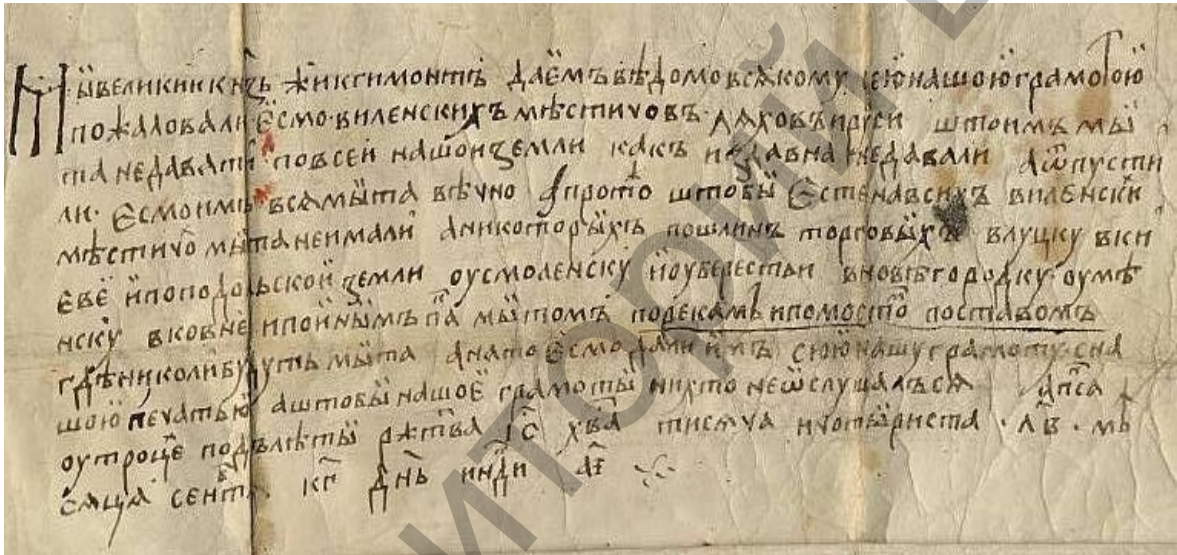 Мы великии кнѧзь жикгимонтъ даемъ вѣдомо всѧкому сею нашою грамотою
пожаловали есмо виленскихъ мѣстичовъ лѧховъ и руси што имъ мы
та недавати по всеи нашои земли какъ издавна недавали аѿпусти
ли есмо имъ всѧ мыта вѣчно апрото штобы есте на всихъ виленски
мѣстичо мыта неимали аникоторыхъ пошлинъ торговыхъ влуцку вки
евѣ и по подольской земли оу смоленску и оу берестьи в новѣгородку оу мѣ
нску вковне ипоинымъ па мытомъ порекамъ ипомосто поставомъ
гдѣ николи будуть мыта анато есмо дали имъ сюю нашу грамоту сна
шою печатью аштобы нашое грамоты нихто неѿслушалъсѧ апса
оу троце подълѣты ржтва іс хва тисѧча ичотыриста лв мѣ
сѧца сентѧ кг днь инди аі
ИТОРИЙ